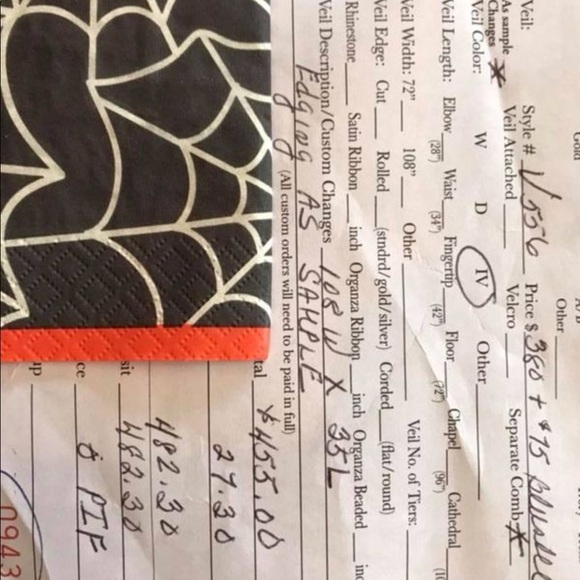 Gold
Other
Veil: Style # V556 Price $ 380 + $75
As sample Veil Attached Velcro Separate Comb X
Changes X
Veil Color: W D IV Other
Veil Length: Elbow (28") Waist (34") Fingertip (42") Floor (72") Chapel (96") Cathedral
Veil Width: 72" 108" Other Veil No. of Tiers:
Veil Edge: Cut Rolled (stndrd/gold/silver) Corded (flat/round)
Rhinestone Satin Ribbon inch Organza Ribbon inch Organza Beaded inc
Veil Description/Custom Changes 108 W X 35L
Edging AS SAMPLE
(All custom orders will need to be paid in full)
tal $455.00
27.30
482.30
sit 482.30
ce PIF
up
0943